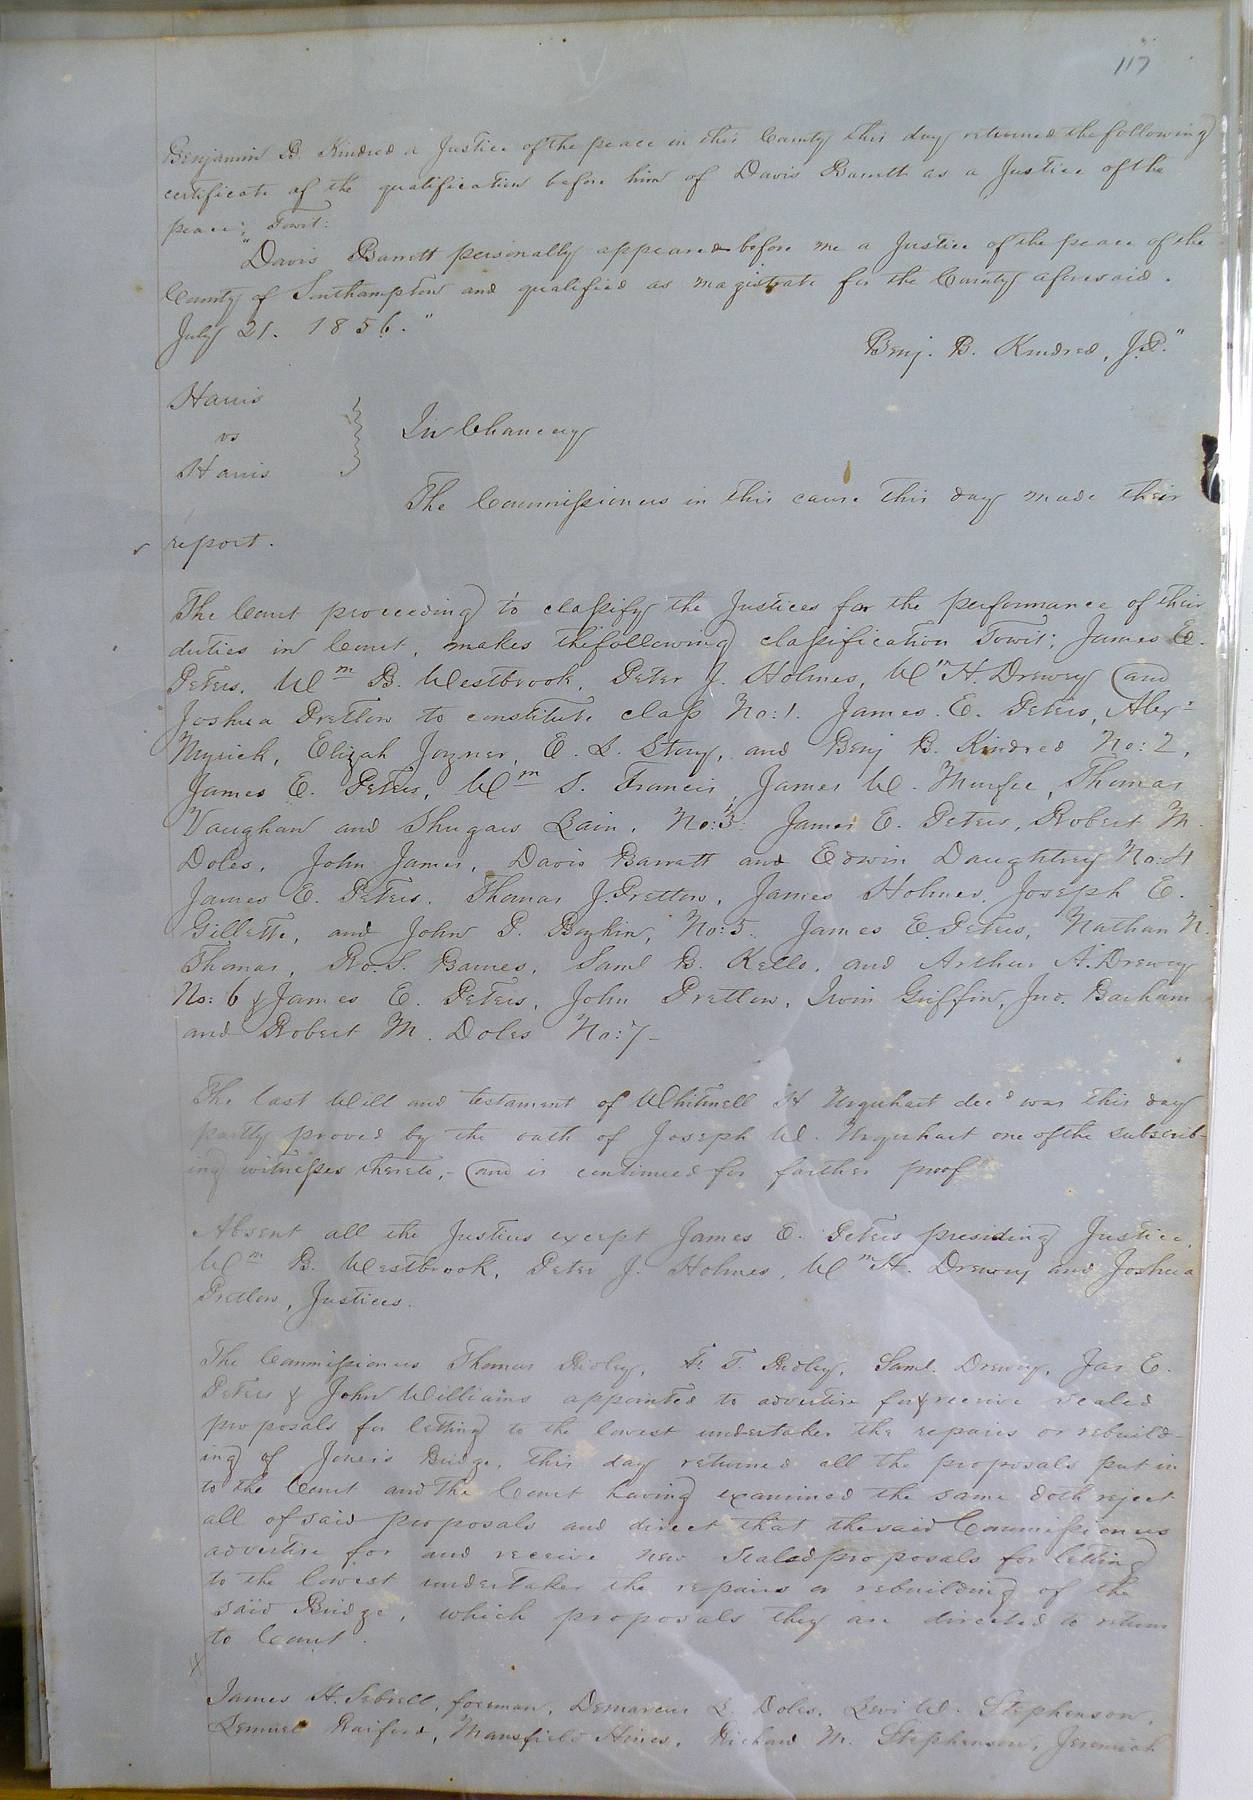 117
Benjamin B. Kindred a Justice of the peace in this County this day returned the following
certificate of the qualification before him of Davis Barrett as a Justice of the
peace; Towit:
"Davis Barrett personally appeared before me a Justice of the peace of the
County of Southampton and qualified as magistrate for the County aforesaid.
July 21. 1856."
Benj. B. Kindred, J.P."
Harris
vs
Harris
In Chancery
The Commissioners in this cause this day made their
report.
The Court proceeding to classify the Justices for the performance of their
duties in Court, makes the following classification Towit; James E.
Peters, Wm B. Westbrook, Peter J. Holmes, Wm H. Drewry and
Joshua Pretlow to constitute class No: 1. James. E. Peters, Alexr
Myrick, Elijah Joyner, E. S. Story, and Benj B. Kindred No: 2,
James E. Peters, Wm S. Francis, James W. Murfee, Thomas
Vaughan and Shugars Lain, No: 3: James E. Peters, Robert M.
Doles, John James, Davis Barrett and Edwin Daughtrey No: 4
James E. Peters, Thomas J. Pretlow, James Holmes, Joseph E.
Gillette, and John P. Boykin, No: 5. James E. Peters, Nathan N.
Thomas, Ro. S. Barnes, Saml B. Kello, and Arthur A. Drewry
No: 6 & James E. Peters, John Pretlow, Irwin Griffin, Jno. Barham
and Robert M. Doles No: 7-
The last Will and testament of Whitmell H Urquhart decd was this day
partly proved by the oath of Joseph W. Urquhart one of the subscrib-
ing witnesses thereto, - and is continued for farther proof
Absent all the Justices except James E. Peters presiding Justice,
Wm B. Westbrook, Peter J. Holmes, Wm H. Drewry and Joshua
Pretlow, Justices.
The Commissioners Thomas Ridley, F. T. Ridley, Saml. Drewry, Jas E.
Peters & John Williams appointed to advertise for & receive sealed
proposals for letting to the lowest undertaker the repairs or rebuild-
ing of Jones's Bridge, this day returned all the proposals put in
to the Court and the Court having examined the same doth reject
all of said proposals and direct that the said Commissioners
advertise for and receive new sealed proposals for letting
to the lowest undertaker the repairs or rebuilding of the
said Bridge, which proposals they are directed to return
to Court.
James H. Sebrell, foreman, Demarcus L. Doles, Levi W. Stephenson,
Lemuel Raiford, Mansfield Hines, Richard M. Stephenson, Jeremiah